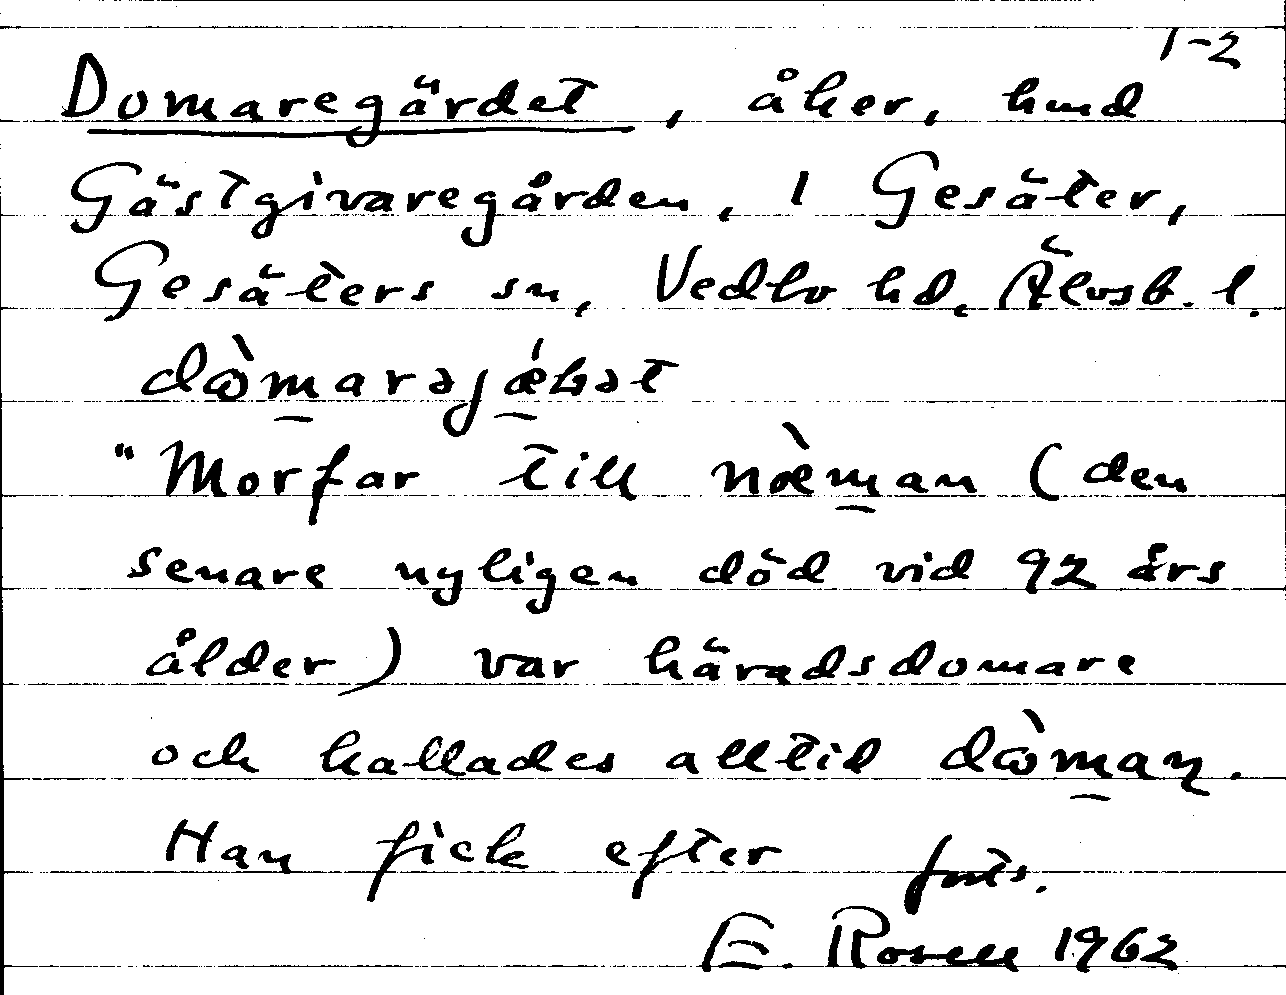 1-2
Domaregärdet, åker, hmd
Gästgivaregården, 1 Gesäter,
Gesäters sn, Vedbo hd, Älvsb. l.
dò̩marəjæ̀bət
"Morfar till næ̀man (den
senare nyligen död vid 92 års
ålder) var häradsdomare
och kallades alltid dɷ̀man̩.
Han fick efter forts.
E. Rosell 1962